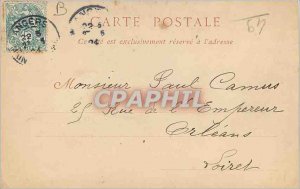 B
CARTE POSTALE
Ce côté est exclusivement réservé à l'adresse
Monsieur Paul Camus
25 Rue de l'Empereur
Orléans
Loiret
CARTES-PRECIATION